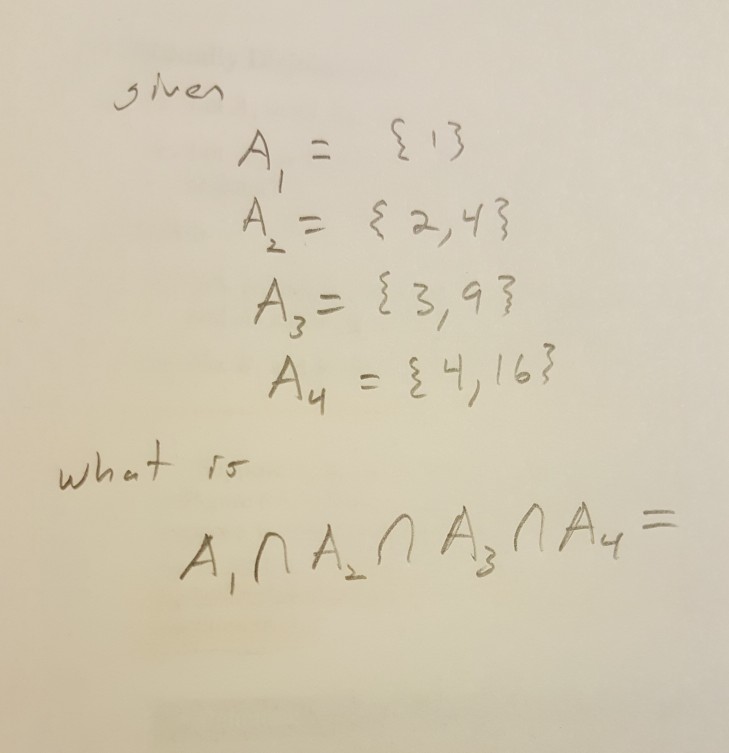 given
A₁ = {1}
A₂ = {2,4}
A₃ = {3,9}
A₄ = {4,16}
what is
A₁ ∩ A₂ ∩ A₃ ∩ A₄ =